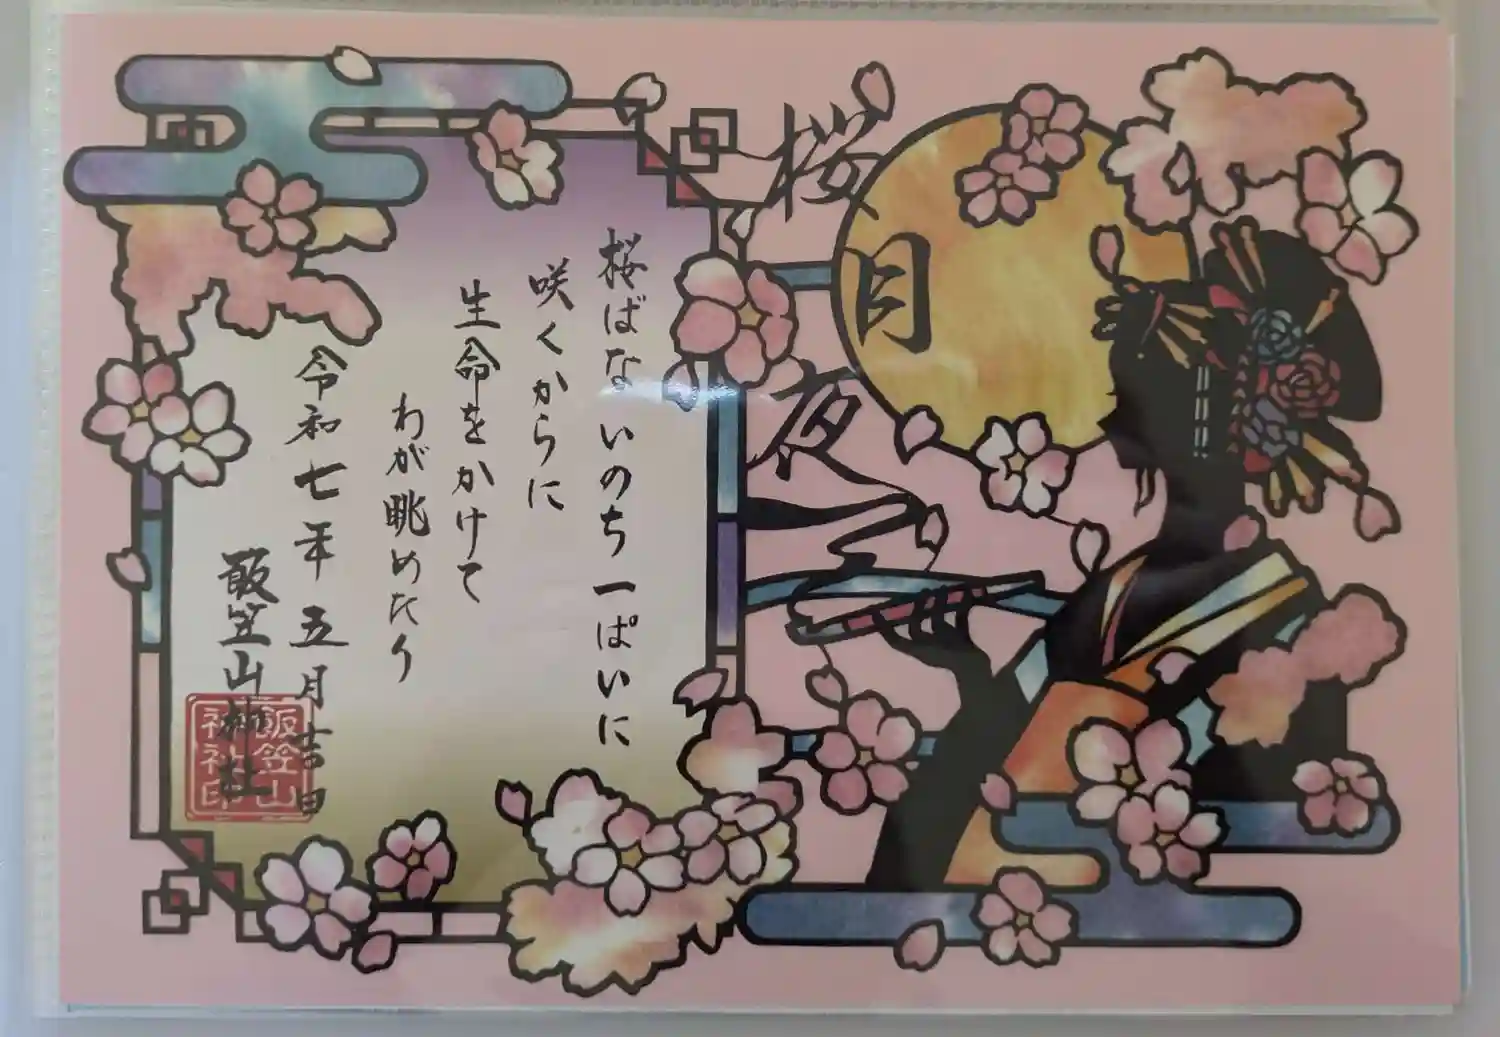 桜
月
夜
桜ばないのち一ぱいに
咲くからに
生命をかけて
わが眺めたり
令和七年五月吉日
飯笠山神社
飯笠山
神社印